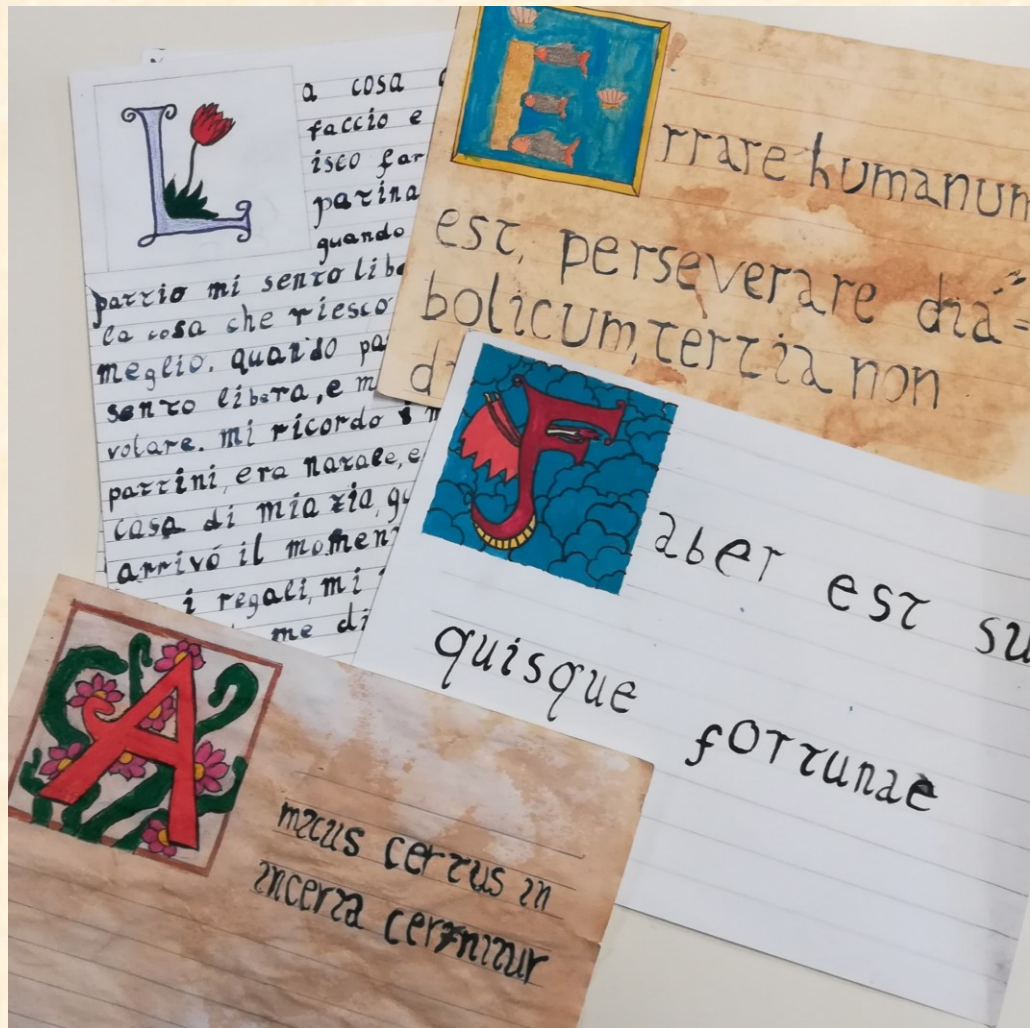 La cosa
faccio e
isco far
pattina
quando
pattio mi sento libe
la cosa che riesco
meglio. quando pa
sento libera, e m
volare. mi ricordo i m
pattini, era natale, e
casa di mia zia, qu
arrivó il momen
i regali, mi
me di
Errare humanum
est, perseverare dia=
bolicum, tertia non
d
Faber est su
quisque
fortunae
Amicus certus in
incerta cernitur